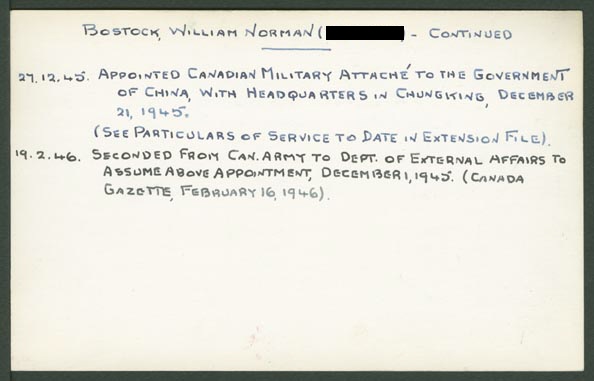 BOSTOCK, WILLIAM NORMAN ( ) - CONTINUED
27.12.45. APPOINTED CANADIAN MILITARY ATTACHÉ TO THE GOVERNMENT
OF CHINA, WITH HEADQUARTERS IN CHUNGKING, DECEMBER
21, 1945.
(SEE PARTICULARS OF SERVICE TO DATE IN EXTENSION FILE).
19.2.46. SECONDED FROM CAN. ARMY TO DEPT. OF EXTERNAL AFFAIRS TO
ASSUME ABOVE APPOINTMENT, DECEMBER 1, 1945. (CANADA
GAZETTE, FEBRUARY 16, 1946).